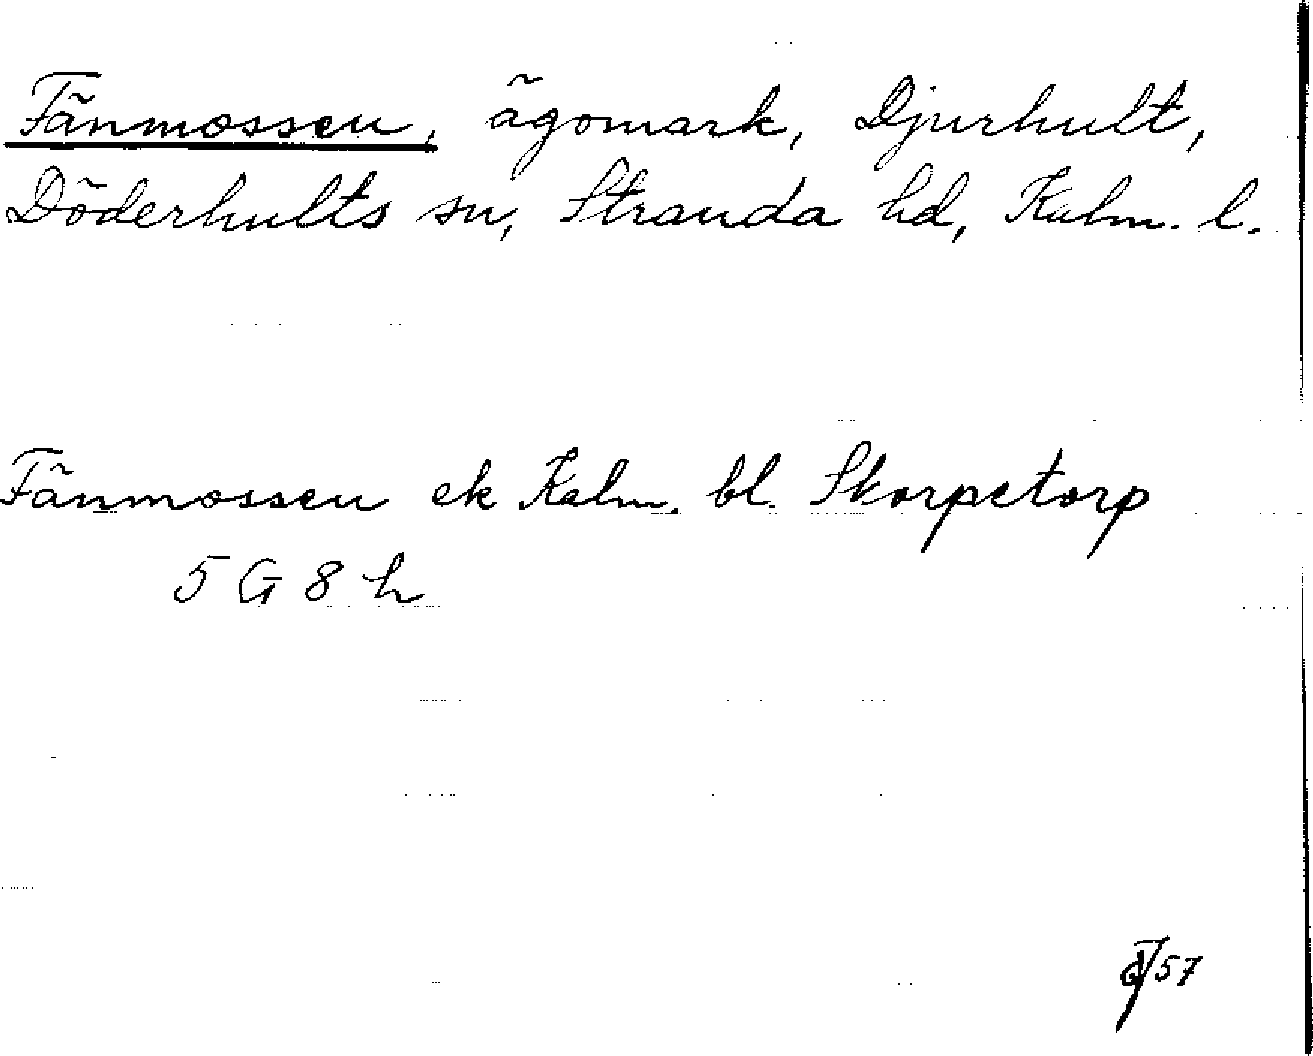 Fänmossen, ägomark, Djurhult,
Döderhults sn, Stranda hd, Kalm. l.
Fänmossen ek Kalm. bl. Skorpetorp
5 G 8 h
57